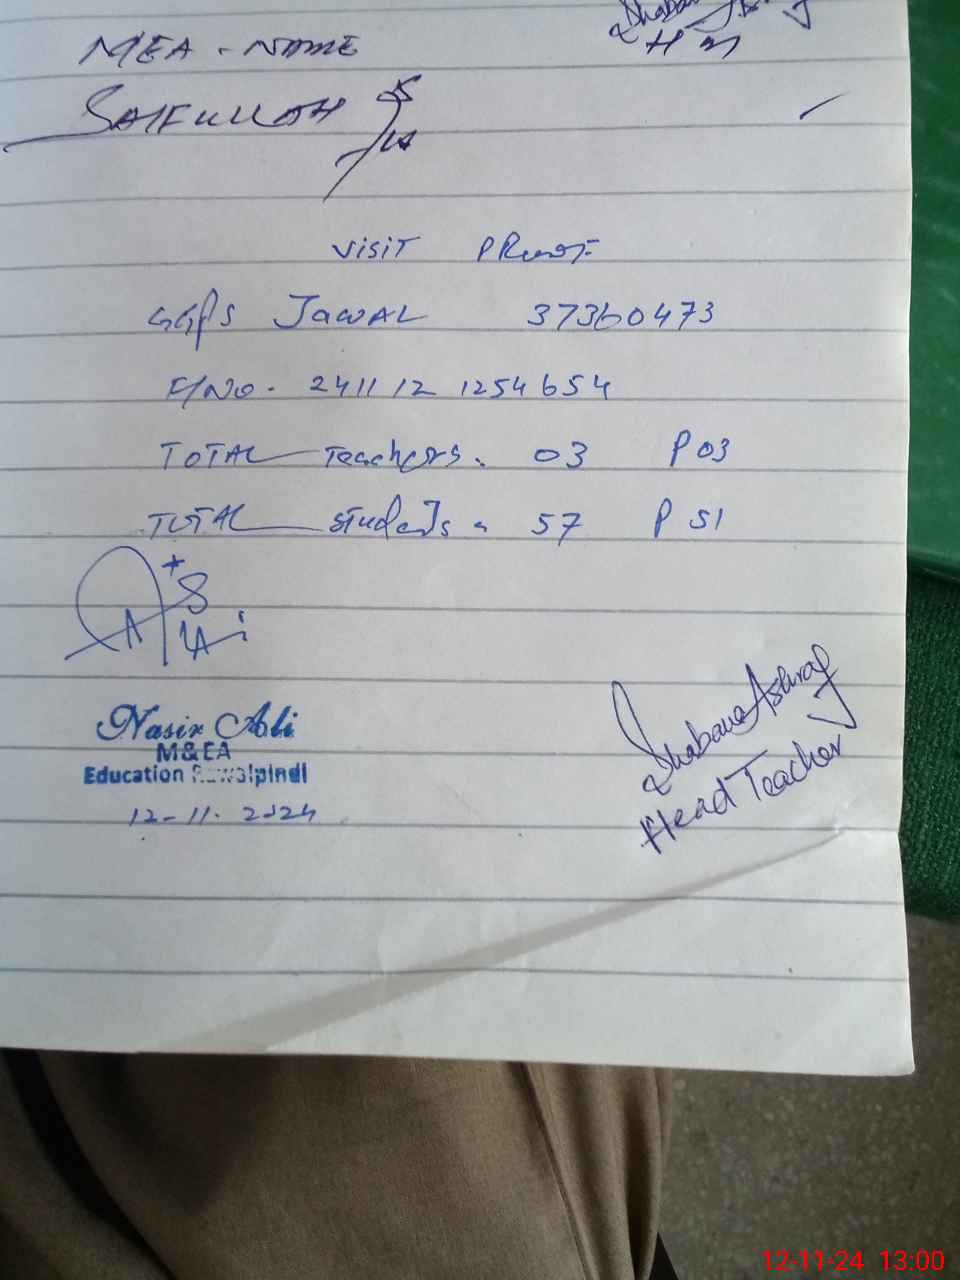 Shabana
H M
MEA - NAME
SAIFULLAH
VISIT PRooF
GGPS JAWAL 37360473
F/No. 241112 1254654
TOTAL Teachers. 03 P 03
TOTAL students 57 P 51
Nasir Ali
M&EA
Education Rawalpindi
12-11-2024
Shabana Ashraf
Head Teacher
12-11-24 13:00